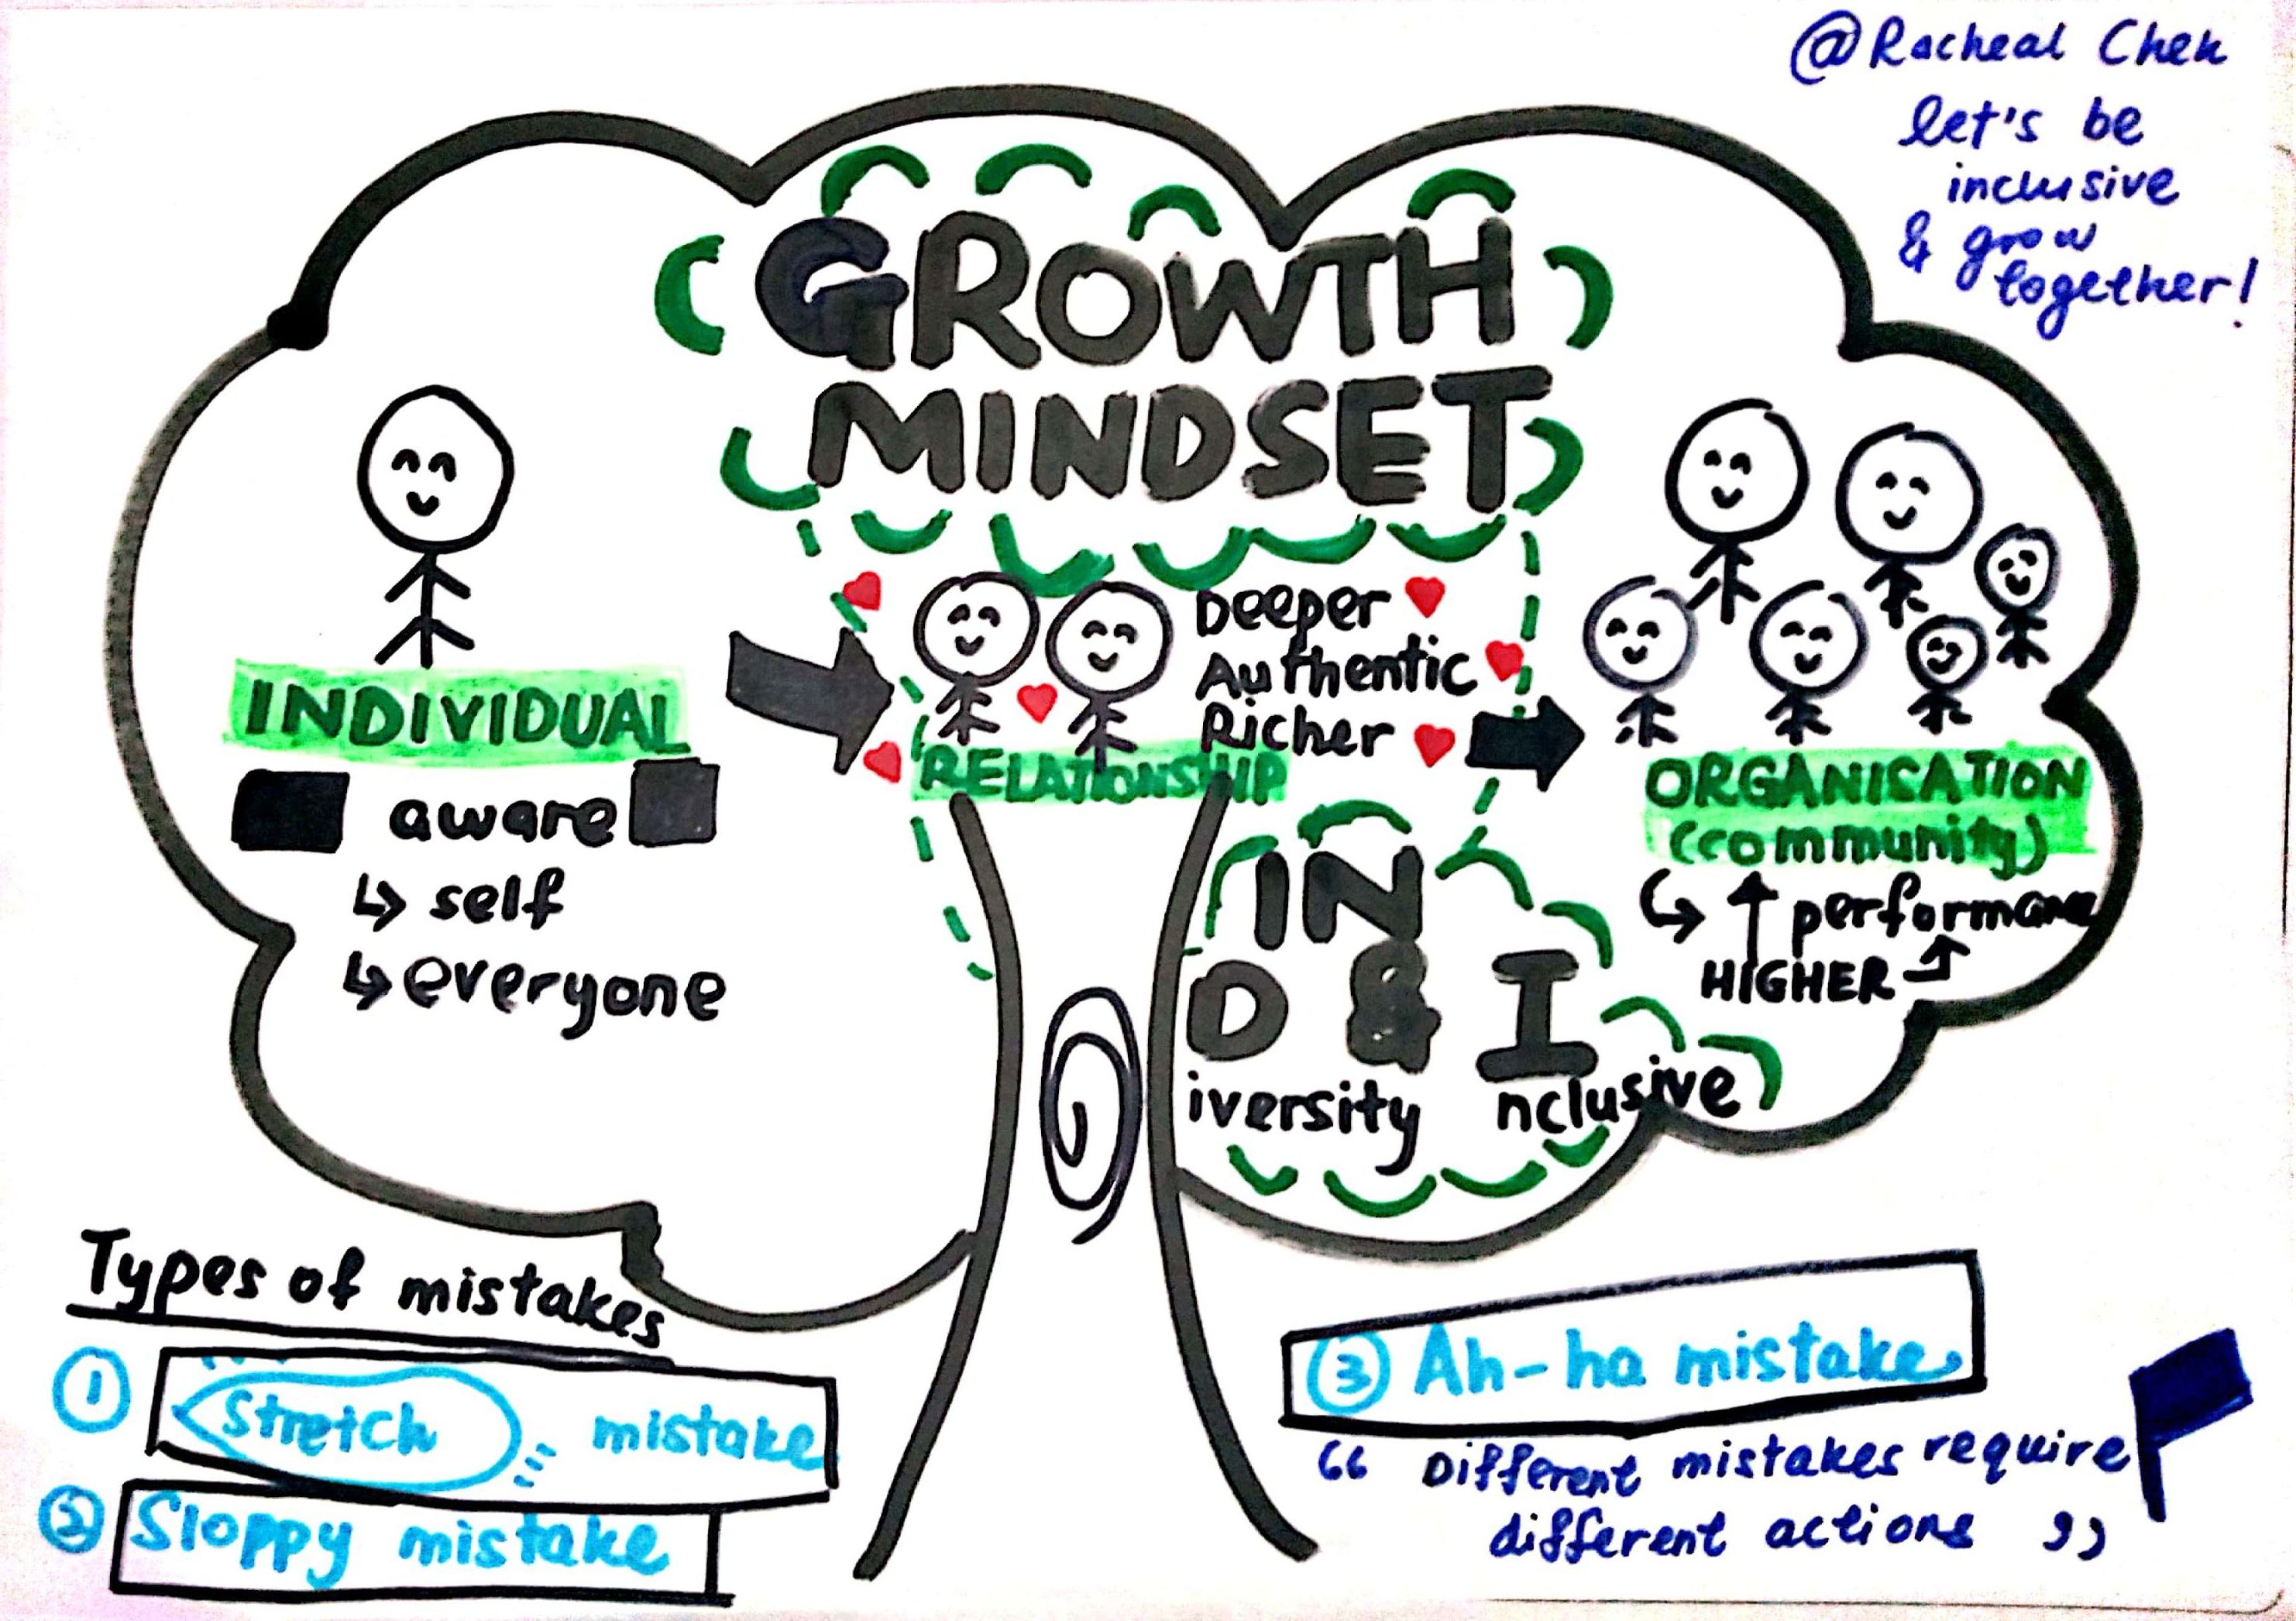 @Racheal Chen
let's be
inclusive
& grow
together!
GROWTH
MINDSET
INDIVIDUAL
aware
↳ self
↳ everyone
Deeper
Authentic
Richer
RELATIONSHIP
ORGANISATION
(community)
↳ ↑ performance
HIGHER
IN
D & I
iversity nclusive
Types of mistakes
① Stretch mistake
② Sloppy mistake
③ Ah-ha mistake
“ Different mistakes require
different actions ”